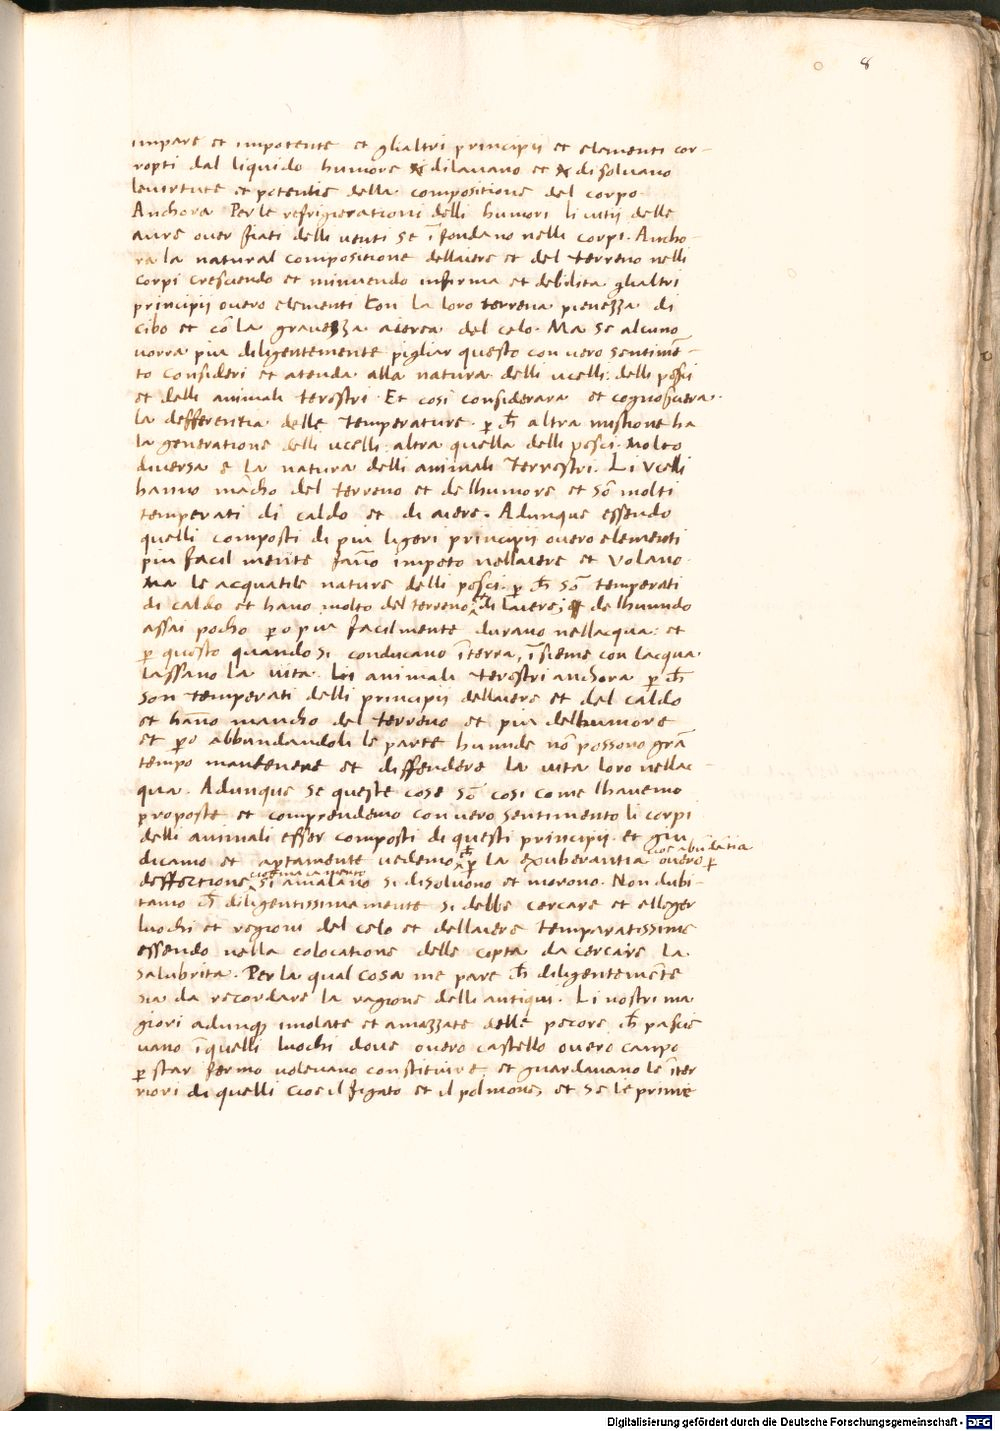 8
impare et impotente et glialtri principij et elementi cor-
ropti dal liquido humore dilavano et disolvano
le virtute et potentie della compositione del corpo.
Anchora Per le refrigierationi delli humori li vitij delle
aure over fiati delli venti se īfondano nelli corpi. Ancho-
ra la natural compositione dellaiere et del terreno nelli
corpi crescendo et minuendo infirma et debilita glialtri
principij overo elementi Con la loro terrena pienezza di
cibo et cō la gravezza aierea del celo. Ma se alcuno
vorra piu diligentemente pigliar questo con vero sentimē-
to Consideri et atenda alla natura delli ucelli: delli pesci
et delli animali terestri. Et cosi considerara et cognoscera
la defferentia delle temperature. p ch̄ altra mistione ha
la generatione delli ucelli altra quella delli pesci. Molto
diversa e la natura delli animali Terrestri. Li Ucelli
hanno mācho del terreno et de lhumore et sō molti
temperati di caldo et di aiere. Adunque essendo
quelli composti di piu ligeri principij overo elementi
piu facil mente fāno impeto nellaiere et volano.
Ma le acquatile nature delli pesci. p ch̄ sō temperati
di caldo et hano molto del terreno: di laiere; de lhumido
assai pocho po piu facilmente durano nellacqua: et
p questo quando si conducano ī terra, īsieme con lacqua
lassano la vita. Li animali terestri anchora p ch̄
son temperati delli principij dellaiere et del caldo
et hāno mancho del terreno et piu delhumore
et po abbundandoli le parte humide nō possono grā
tempo mantenere et diffendere la vita loro nellac-
qua. Adunque se queste cose sō cosi come lhavemo
proposte et comprendemo con vero sentimento li corpi
delli animali esser composti di questi principij et giu-
cioe abūdātia
dicamo et aptamente vedemo ch̄ p la exuberantia overo p
cioe mācamento
deffectione si amalano si disolvono et morono. Non dubi-
tamo ch̄ diligentissimamente si debbe cercare et elleger
luochi et regioni del celo et dellaiere temparatissime
essendo nella colocatione delle copta da cercare la
salubrita. Per la qual cosa me pare ch̄ diligentemēte
sia da recordare la ragione delli antiqui. Li nostri ma
giori adunq imolate et amazzate delle pecore ch̄ pascie
vano ī quelli luochi dove overo castello overo campo
p star fermo volevano constituire et guardavano le īter
riori di quelli Cioe il figato et il polmone, et se le prime
Digitalisierung gefördert durch die Deutsche Forschungsgemeinschaft - DFG